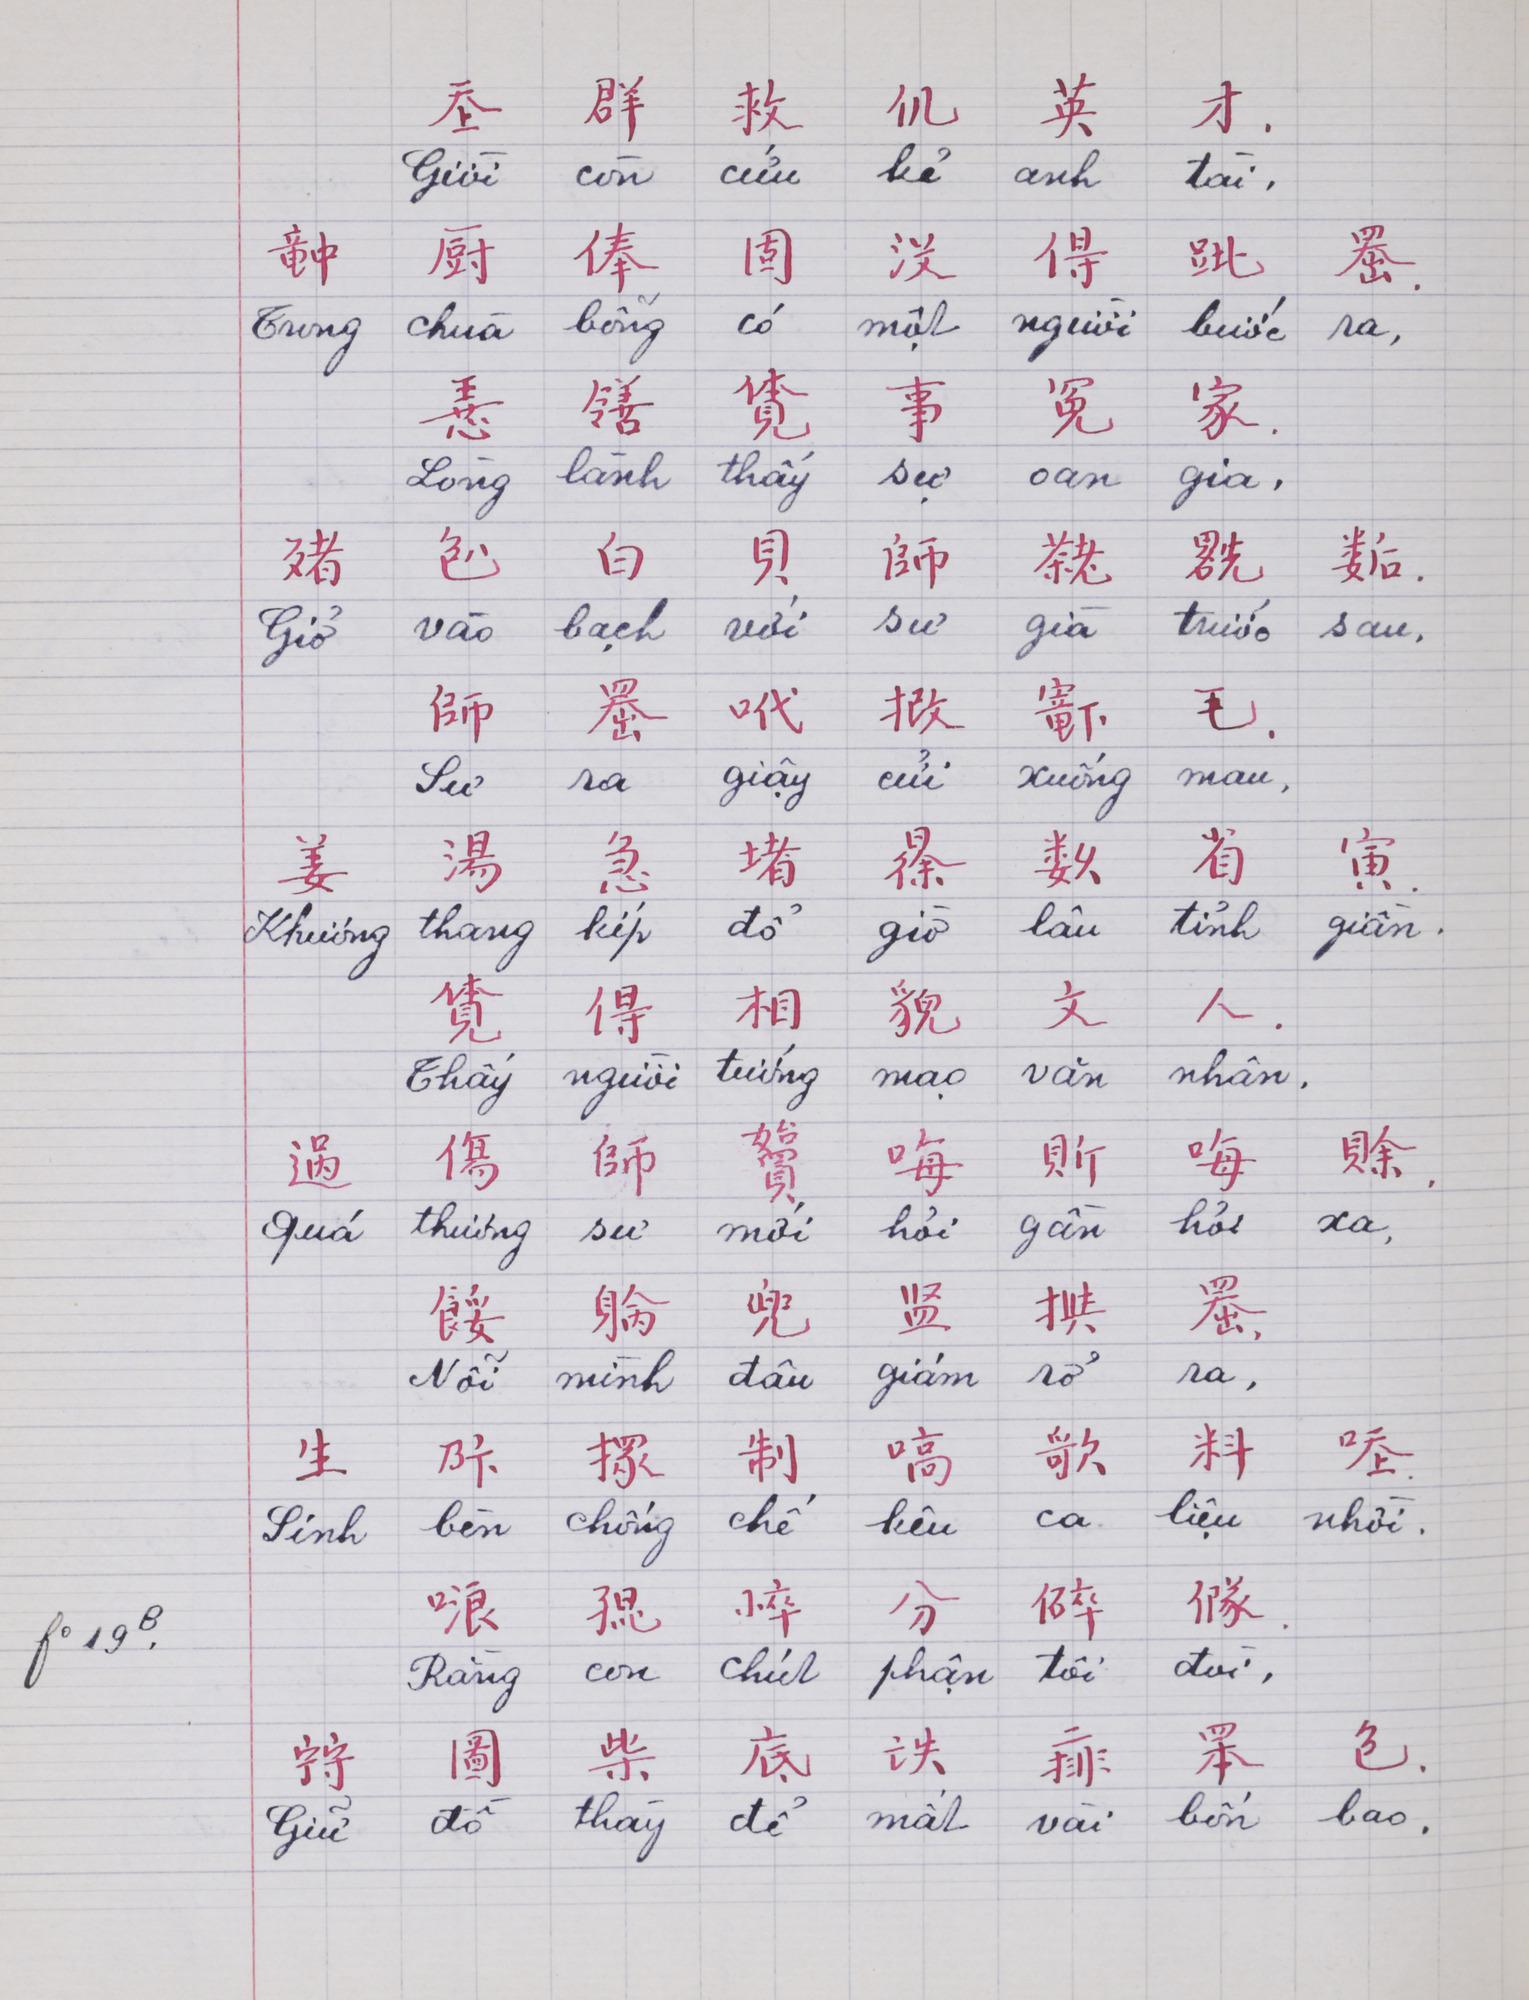 𡗶群救仉英才.
Giời còn cứu kẻ anh tài,
𥪝厨俸固没得𨀈𠚢.
Trong chùa bỗng có một người bước ra,
𢚸𠳙𧡊事冤家.
Lòng lành thấy sự oan gia,
𠓨白貝師𦓅𠓀𢖖.
Giở vào bạch với sư già trước sau,
師𠚢𠯋𢭮𨑜毛.
Sư ra giậy cửi xuống mau,
姜湯急堵𣇞数省寅.
Khương thang kíp đổ giờ lâu tỉnh giần.
𧡊得相貌文人.
Thấy người tướng mạo văn nhân.
過傷師𧷺𠳨𧵆𠳨賒.
Quá thương sư mới hỏi gần hỏi xa,
餒𨉟兜监𠚢.
Nỗi mình đâu giám rở ra,
生制嗃歌料𠴔.
Sinh bèn chống chế kêu ca liệu nhời.
f° 19 B.
哴𡥵悴分碎.
Rằng con chút phận tôi đòi,
𡨹圖柴底𠅍𦊛包.
Giữ đồ thày để mất vài bốn bao.